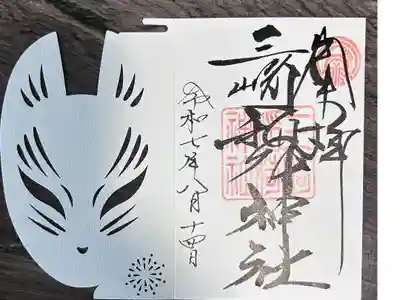 奉拝
三崎
稲荷神社
令和七年八月十四日